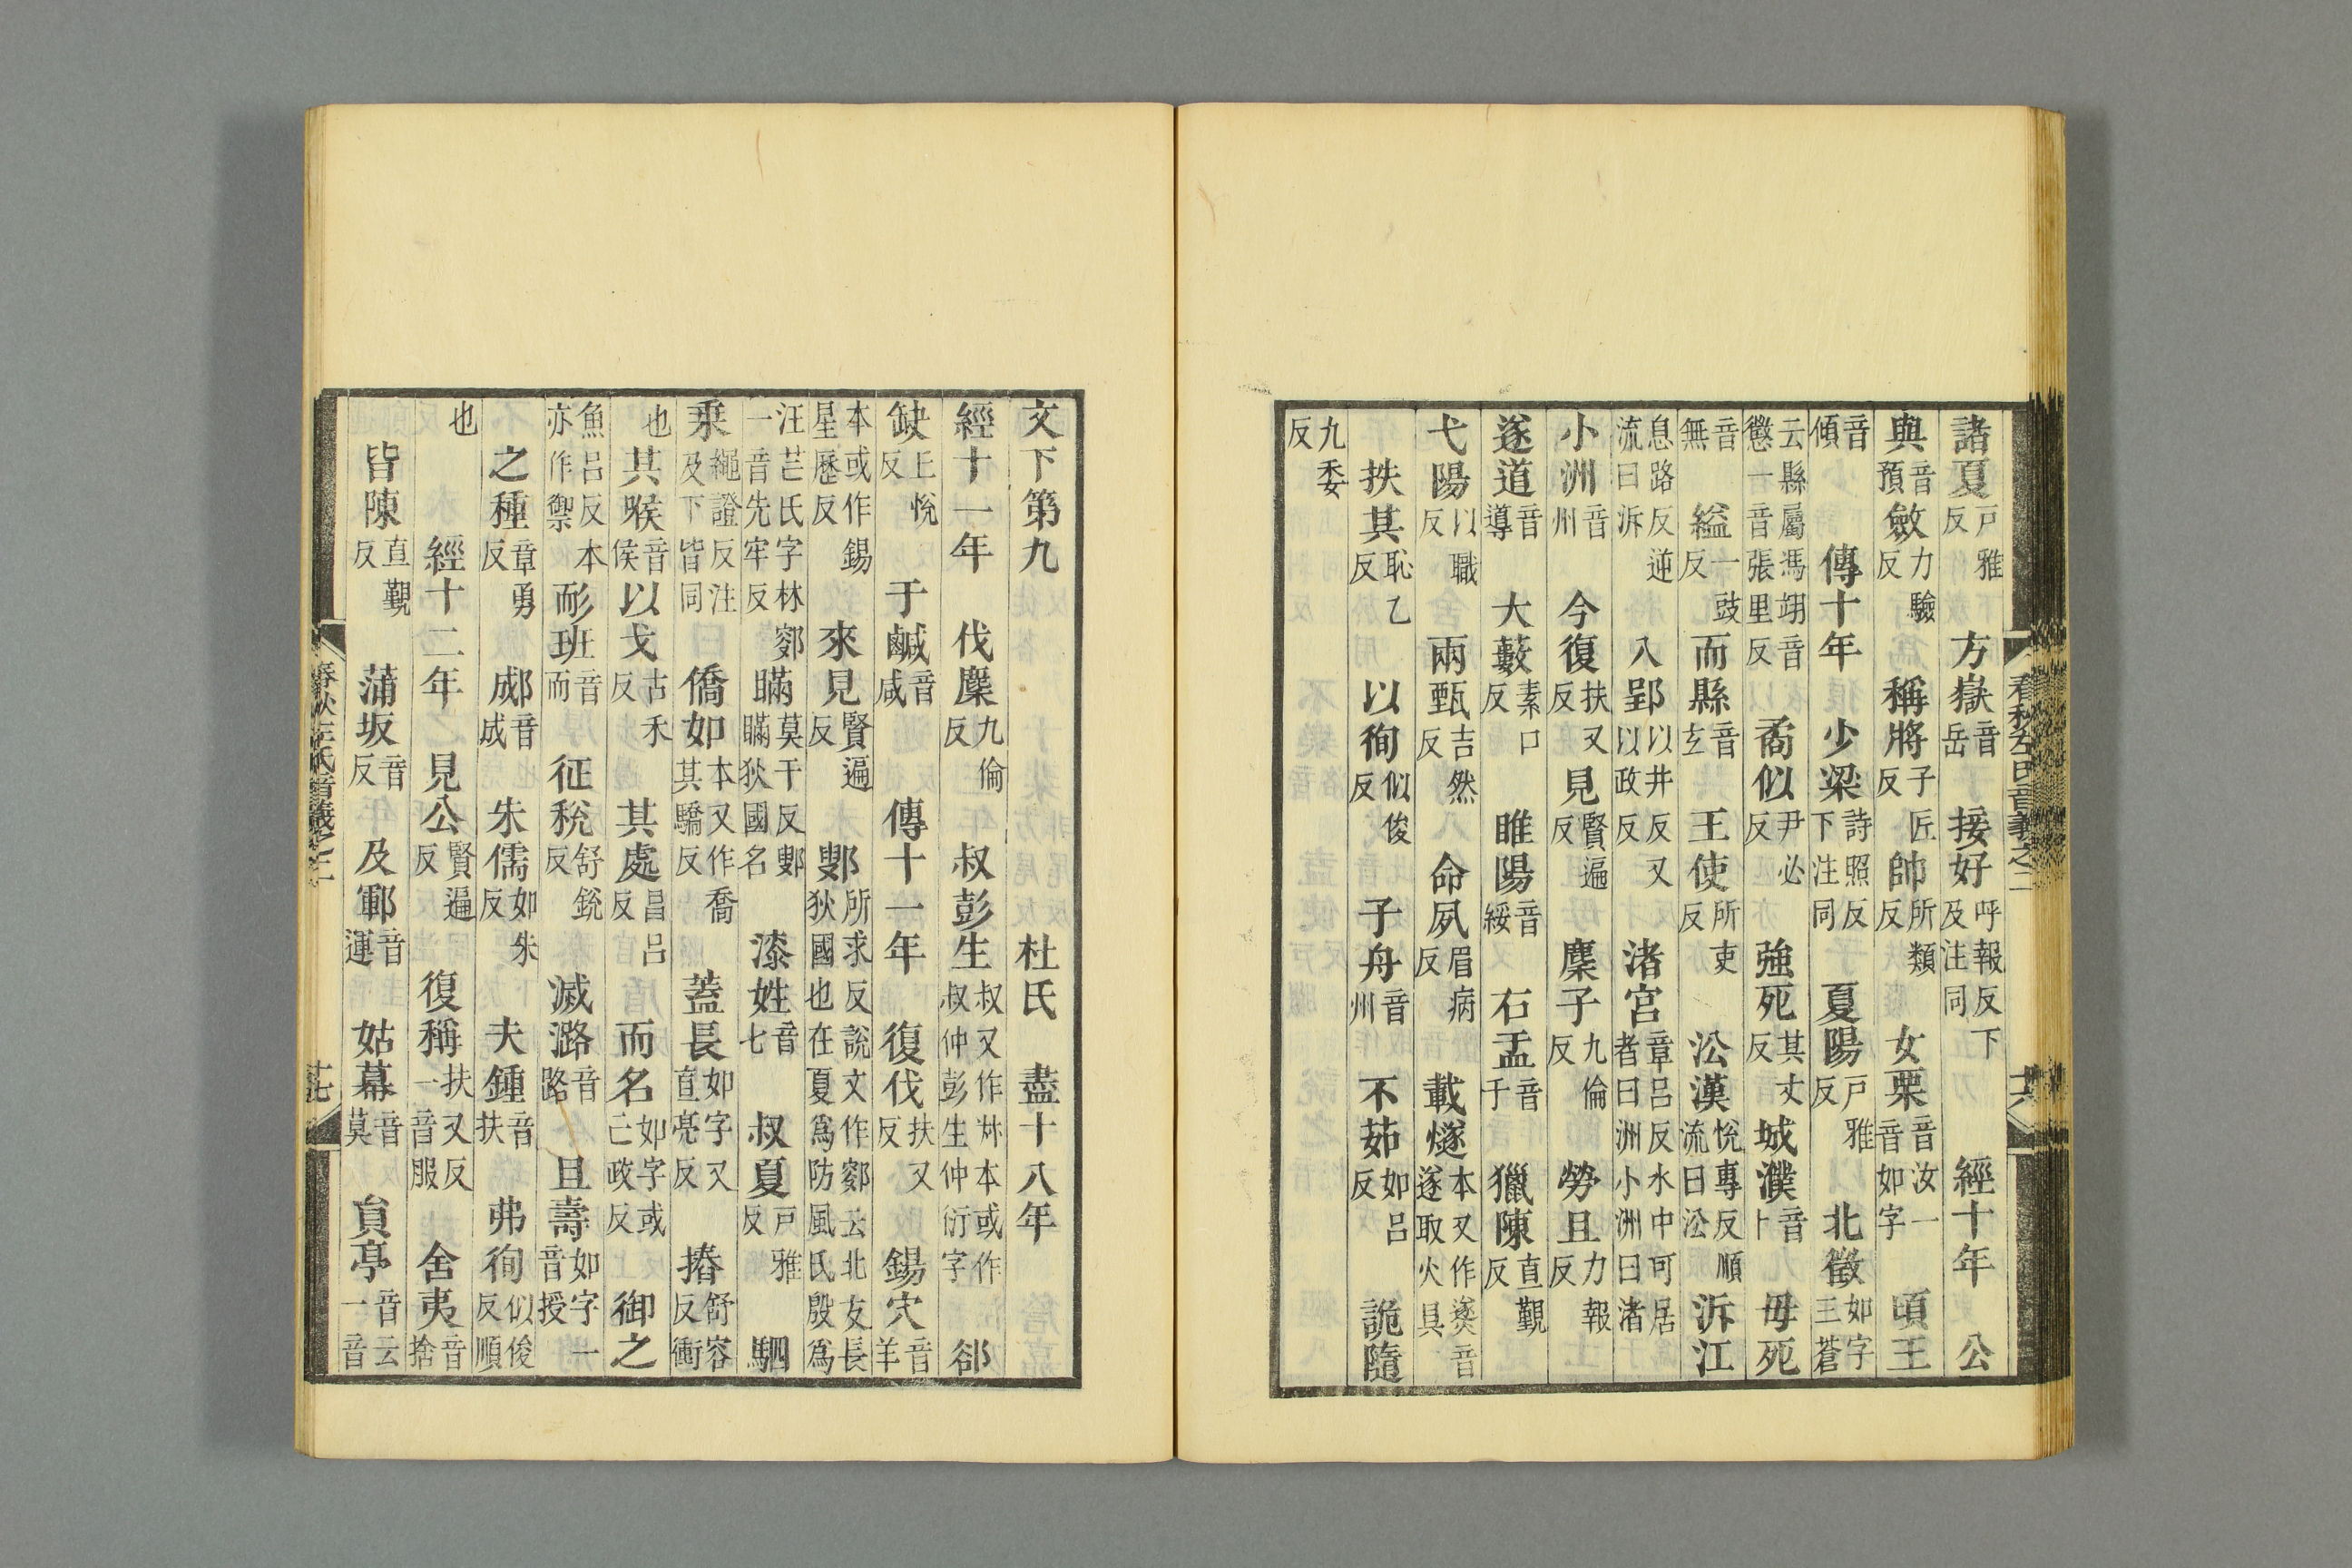 諸夏戶雅反 方嶽音岳 接好呼報反下及注同 經十年 公
與音預 斂力驗反 稱將子匠反 帥所類反 女栗音汝一音如字 頃王
音傾 傳十年 少梁詩照反下注同 夏陽戶雅反 北徵如字三蒼
云縣屬馮翊音懲一音張里反 矞似尹必反 強死其丈反 城濮音卜 毋死
音無 縊一豉反 而縣音玄 王使所吏反 沿漢悅專反順流曰沿 泝江
息路反逆流曰泝 入郢以井反又以政反 渚宮章呂反水中可居者曰洲小洲曰渚
小洲音州 今復扶又反 見賢遍反 麇子九倫反 勞且力報反
遂道音導 大藪素口反 睢陽音綏 右盂音于 獵陳直觀反
弋陽以職反 兩甄吉然反 命夙眉病反 載燧本又作㸂音遂取火具
扶其恥乙反 以徇似俊反 子舟音州 不茹如呂反 詭隨
九委反
春秋左氏音義之二 十六
文下第九 杜氏 盡十八年
經十一年 伐麇九倫反 叔彭生叔又作尗本或作叔仲彭生仲衍字 郤
缺上悅反 于鹹音咸 傳十一年 復伐扶又反 錫穴音羊
本或作錫星歷反 來見賢遍反 鄋所求反說文作鄋云北方長狄國也在夏爲防風氏殷爲
汪芒氏字林鄋一音先牢反 瞞莫干反鄋瞞狄國名 漆姓音七 叔夏戶雅反 駟
乘繩證反注及下皆同 僑如本又作喬其驕反 蓋長如字又直亮反 摏舒容反衝
也 其喉音侯 以戈古禾反 其處昌呂反 而名如字或亡政反 御之
魚呂反本亦作禦 耏班音而 征稅舒銳反 滅潞音路 且壽如字一音授
之種章勇反 郕音成 朱儒如朱反 夫鍾音扶 弗徇似俊反順
也 經十二年 見公賢遍反 復稱扶又反一音服 舍夷音捨
皆陳直覲反 蒲坂音反 及鄆音運 姑幕音莫 員亭音云一音
春秋左氏音義之二 十七